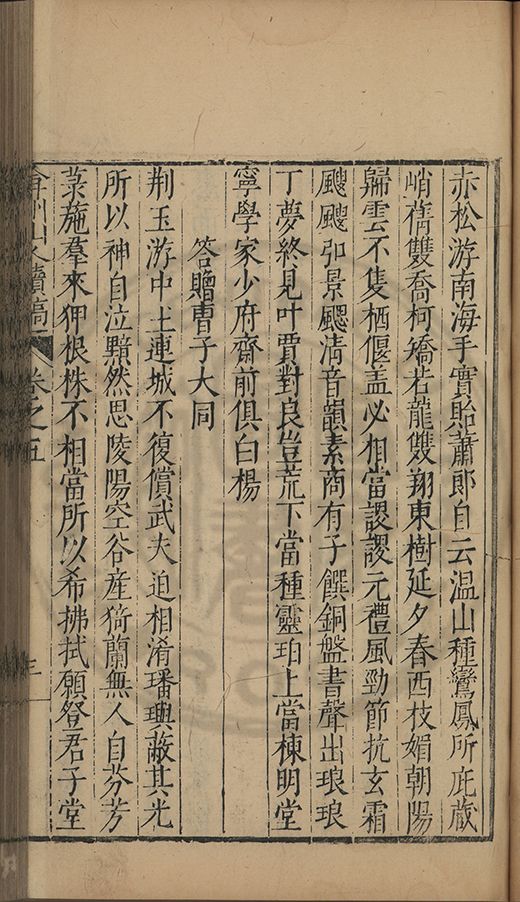 赤松游南海手實貽蕭郎自云温山種鸞鳳所庇藏
峭蒨雙喬柯矯若龍雙翔東樹延夕春西枝媚朝陽
歸雲不隻栖偃盖必相當謖謖元禮風勁節抗玄霜
颼颼弨景颸清音韻素商有子饌銅盤書聲出琅琅
丁夢終見叶賈對良豈荒下當種靈珀上當棟明堂
寧學家少府齋前俱白楊
答贈曹子大同
荆玉游中土連城不復償武夫迫相淆璠璵蔽其光
所以神自泣顯然思陵陽空谷産猗蘭無人自芬芳
菉葹羣來狎根株不相當所以希拂拭願登君子堂
弇州山人續稿 卷之五 三